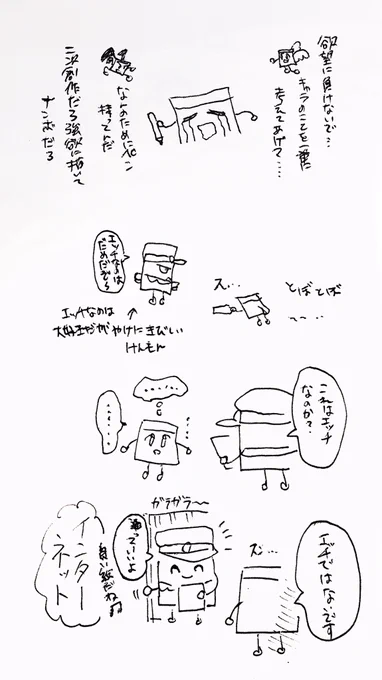 欲望に負けないで…
キャラのことを一番に
考えてあげて……
なんのためにペン
持ってんだ
二次創作だろ強欲に描いて
ナンボだろ
エッチなのは
だめだぞ
エッチなのは
大好きだが やけにきびしい
けんもん
え…
とぼとぼ
これはエッチ
なのか?
……
……
エッチではないです
ズッ…
ガラガラ〜
通っていーよ
良い絵だねぇ
インター
ネット